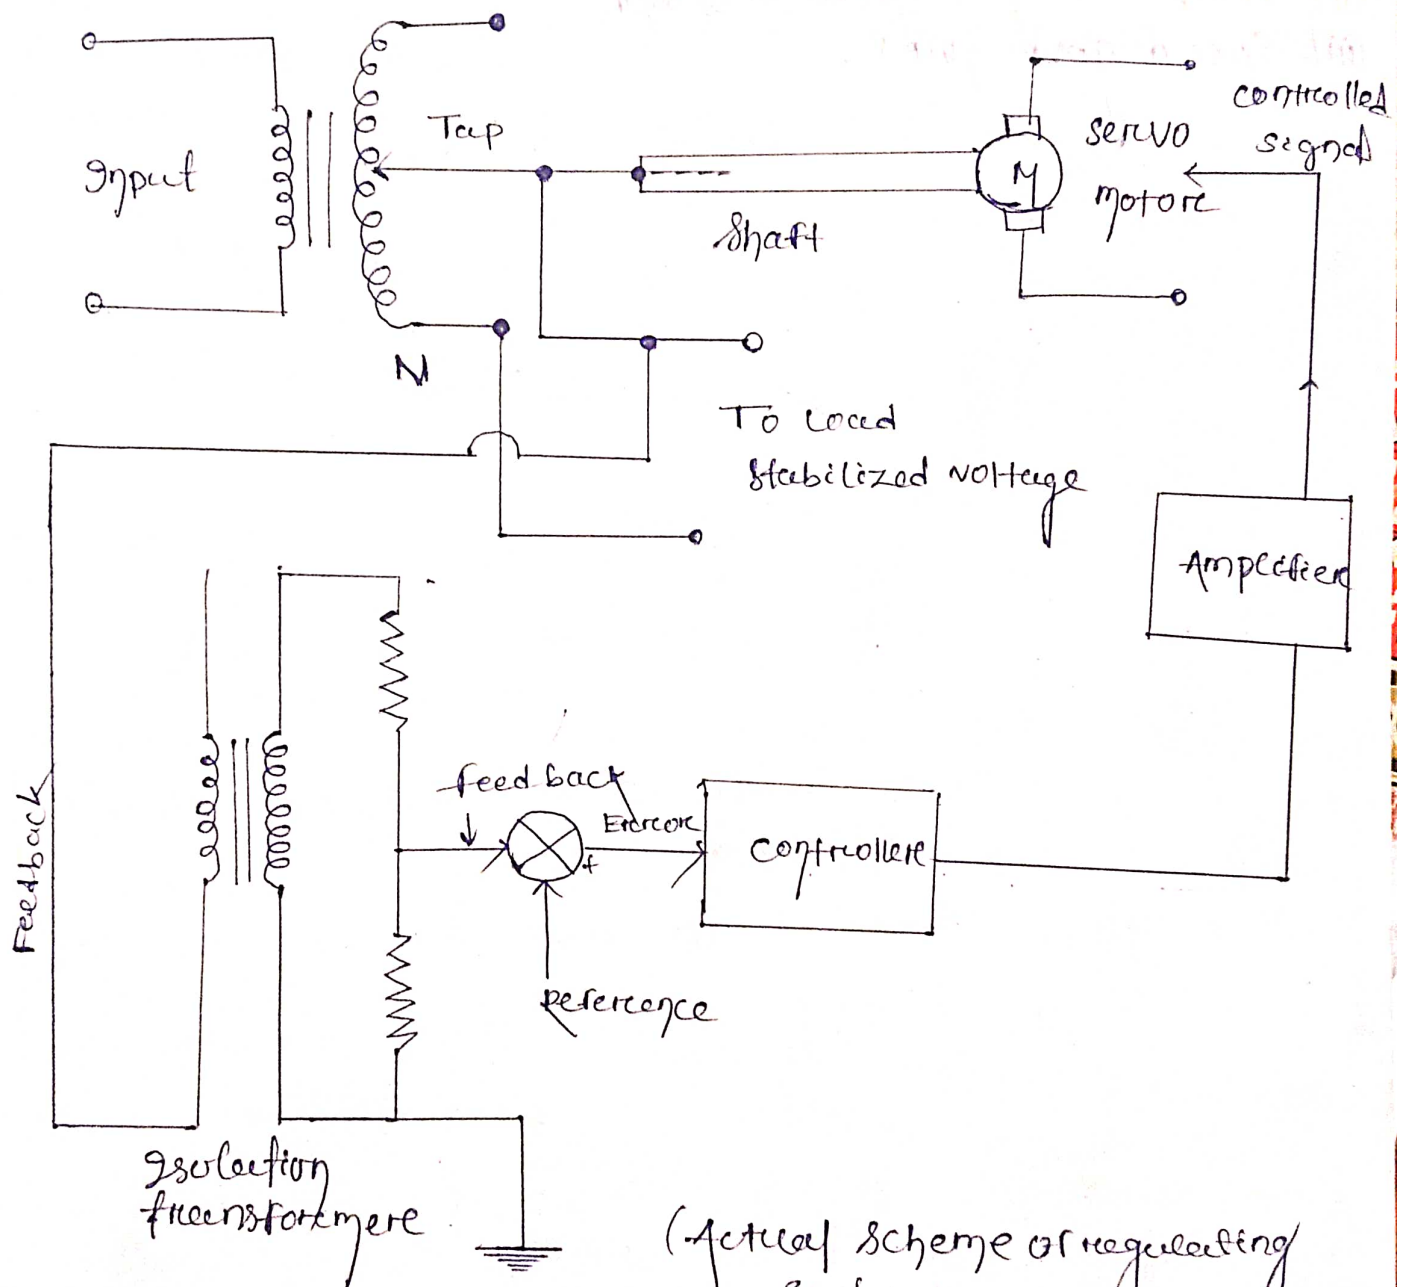 Input
Tap
N
Shaft
M
servo
motor
controlled
signal
To Load
Stabilized voltage
Amplifier
Feedback
feed back
Error
+
Controller
Reference
Isolation
transformer
(Actual scheme of regulating